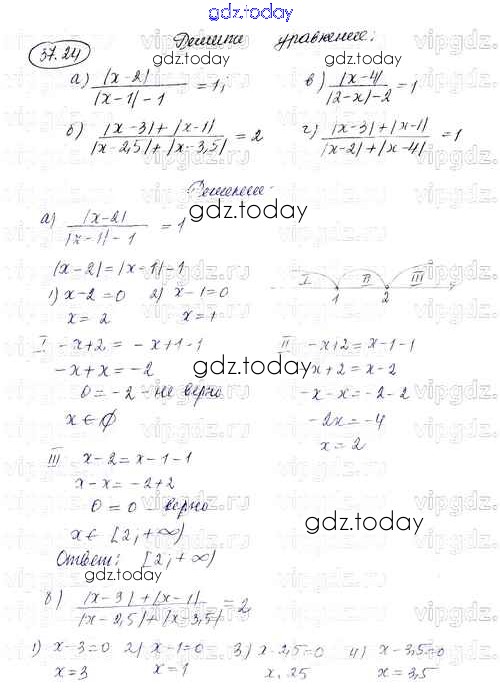 gdz.today
37.24
Решите уравнение:
а) |x-2| / (|x-1|-1) = 1;   в) |x-4| / (|2-x|-2) = 1
б) (|x-3|+|x-1|) / (|x-2,5|+|x-3,5|) = 2   г) (|x-3|+|x-1|) / (|x-2|+|x-4|) = 1
Решение:
а) |x-2| / (|x-1|-1) = 1
gdz.today
|x-2|=|x-1|-1
1) x-2=0   2) x-1=0
x=2   x=1
I   II   III
1   2
I  -x+2 = -x+1-1
-x+x=-2
0=-2 - не верно
x∈∅
gdz.today
II  -x+2=x-1-1
-x+2=x-2
-x-x=-2-2
-2x=-4
x=2
III  x-2=x-1-1
x-x=-2+2
0=0 - верно
x∈[2;+∞)
Ответ: [2;+∞)
gdz.today
б) (|x-3|+|x-1|) / (|x-2,5|+|x-3,5|) = 2
1) x-3=0   2) x-1=0   3) x-2,5=0   4) x-3,5=0
x=3   x=1   x.25   x=3,5
gdz.today